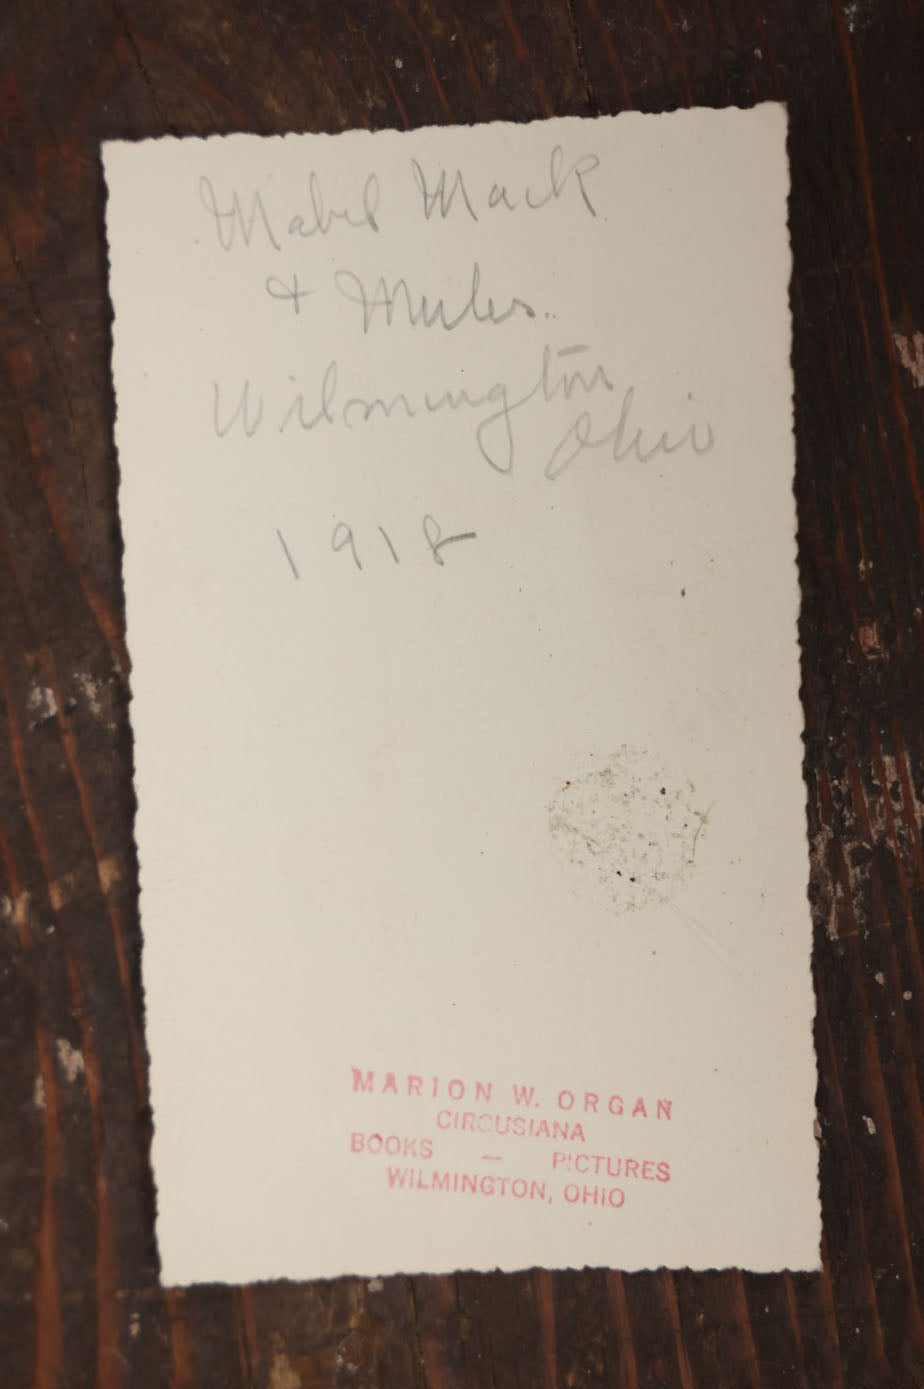 Mabel Mack
+ Mules
Wilmington
Ohio
1918
MARION W. ORGAN
CIRCUSIANA
BOOKS — PICTURES
WILMINGTON, OHIO